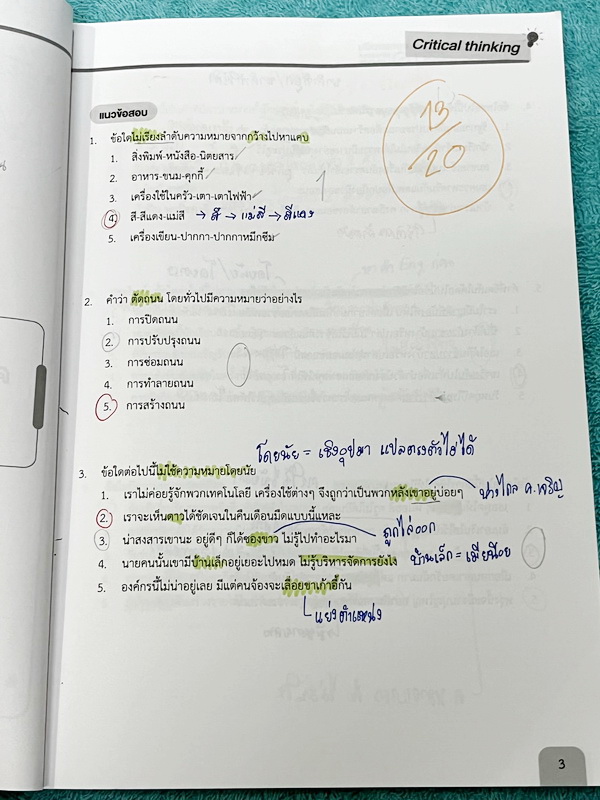 Critical thinking
13/20
แนวข้อสอบ
1. ข้อใดไม่เรียงลำดับความหมายจากกว้างไปหาแคบ
1. สิ่งพิมพ์-หนังสือ-นิตยสาร
2. อาหาร-ขนม-คุกกี้
3. เครื่องใช้ในครัว-เตา-เตาไฟฟ้า
1
4. สี-สีแดง-แม่สี → สี → แม่สี → สีแดง
5. เครื่องเขียน-ปากกา-ปากกาหมึกซึม
2. คำว่า ตัดถนน โดยทั่วไปมีความหมายว่าอย่างไร
1. การปิดถนน
2. การปรับปรุงถนน
3. การซ่อมถนน
4. การทำลายถนน
5. การสร้างถนน
โดยนัย = เชิงอุปมา แปลตรงตัวไม่ได้
3. ข้อใดต่อไปนี้ไม่ใช้ความหมายโดยนัย
1. เราไม่ค่อยรู้จักพวกเทคโนโลยี เครื่องใช้ต่างๆ จึงถูกว่าเป็นพวกหลังเขาอยู่บ่อยๆ ห่างไกล ค.เจริญ
2. เราจะเห็นดาวได้ชัดเจนในคืนเดือนมืดแบบนี้แหละ
ถูกไล่ออก
3. น่าสงสารเขานะ อยู่ดีๆ ก็ได้ซองขาว ไม่รู้ไปทำอะไรมา
4. นายคนนั้นเขามีบ้านเล็กอยู่เยอะไปหมด ไม่รู้บริหารจัดการยังไง บ้านเล็ก = เมียน้อย
5. องค์กรนี้ไม่น่าอยู่เลย มีแต่คนจ้องจะเลื่อยขาเก้าอี้กัน
แย่งตำแหน่ง
3